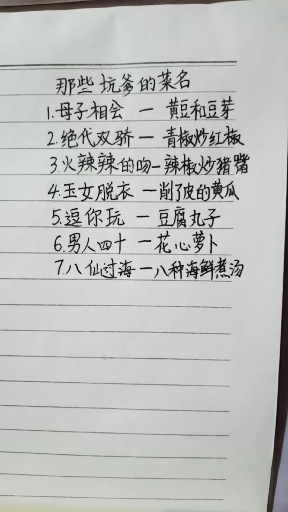 那些坑爹的菜名
1.母子相会 — 黄豆和豆芽
2.绝代双骄 — 青椒炒红椒
3.火辣辣的吻—辣椒炒猪嘴
4.玉女脱衣—削了皮的黄瓜
5.逗你玩 — 豆腐丸子
6.男人四十 — 花心萝卜
7.八仙过海—八种海鲜煮汤